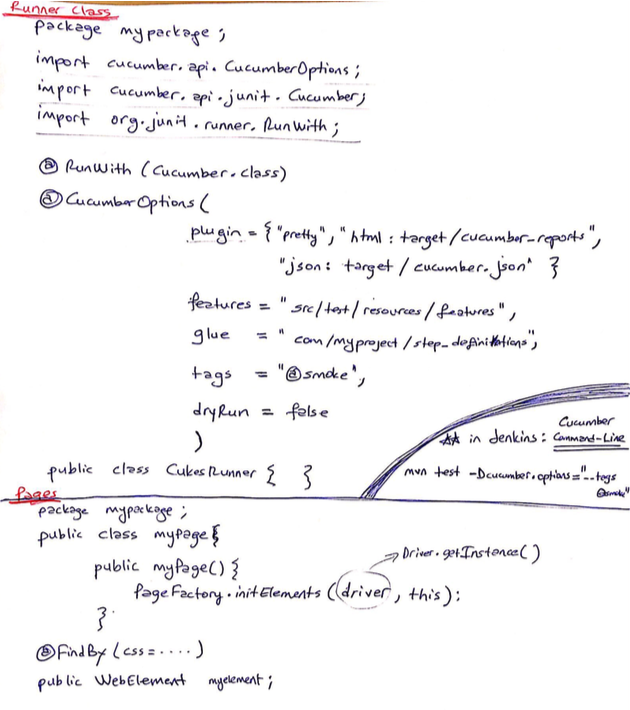 Runner Class
package mypackage;
import cucumber.api.CucumberOptions;
import cucumber.api.junit.Cucumber;
import org.junit.runner.RunWith;
@RunWith (Cucumber.class)
@CucumberOptions (
plugin = {"pretty", "html: target/cucumber-reports",
"json: target/cucumber.json" }
features = "src/test/resources/features",
glue = "com/myproject/step_definitions",
tags = "@smoke",
dryRun = false
)
public class CukesRunner { }
** in Jenkins: Cucumber Command-Line
mvn test -Dcucumber.options="--tags
@smoke"
Pages
package mypackage;
public class myPage{
public myPage() {
Driver.getInstance()
PageFactory.initElements (driver, this);
}
@FindBy (css= ....)
public WebElement myelement;